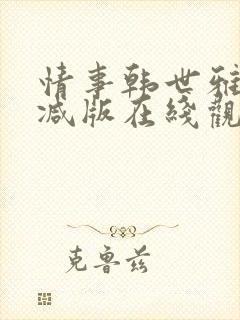 情事韩世雅
减版在线觀
克鲁兹